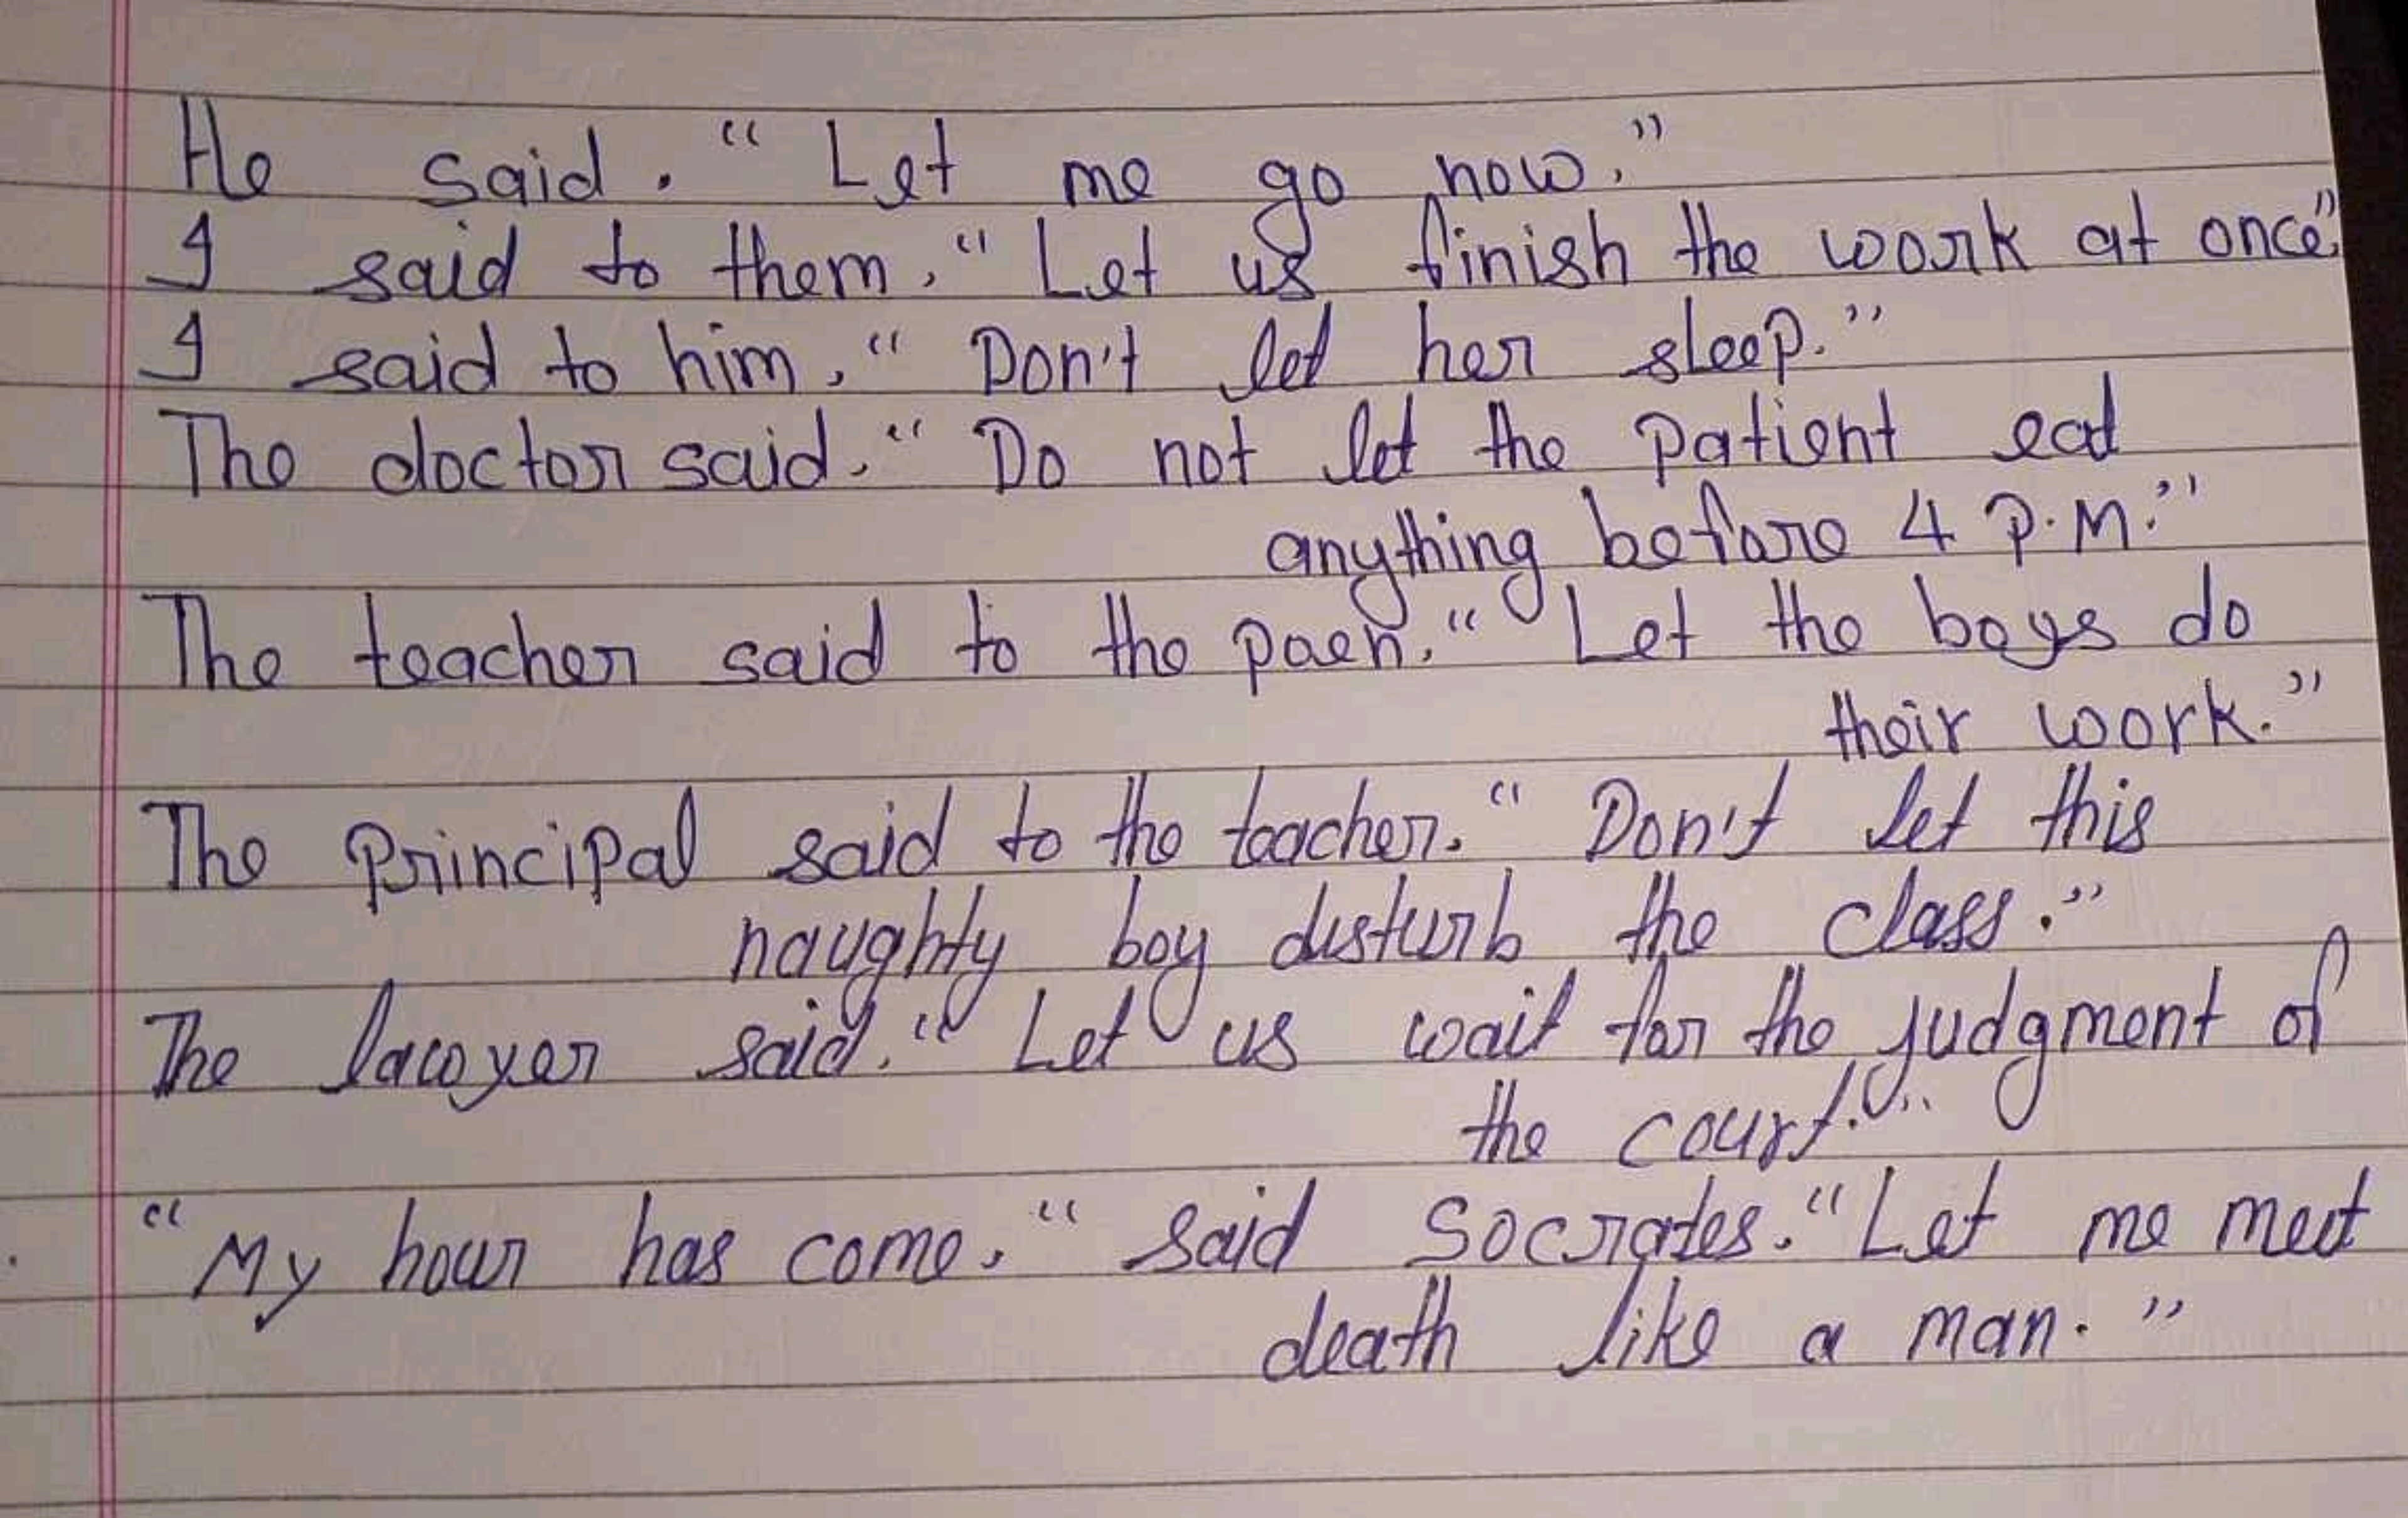 He said. "Let me go now."
I said to them, "Let us finish the work at once".
I said to him, "Don't let her sleep."
The doctor said. "Do not let the patient eat
anything before 4 P.M."
The teacher said to the paen. "Let the boys do
their work."
The principal said to the teacher. "Don't let this
naughty boy disturb the class."
The lawyer said. "Let us wait for the judgment of
the court."
"My hour has come." said Socrates. "Let me meet
death like a man."